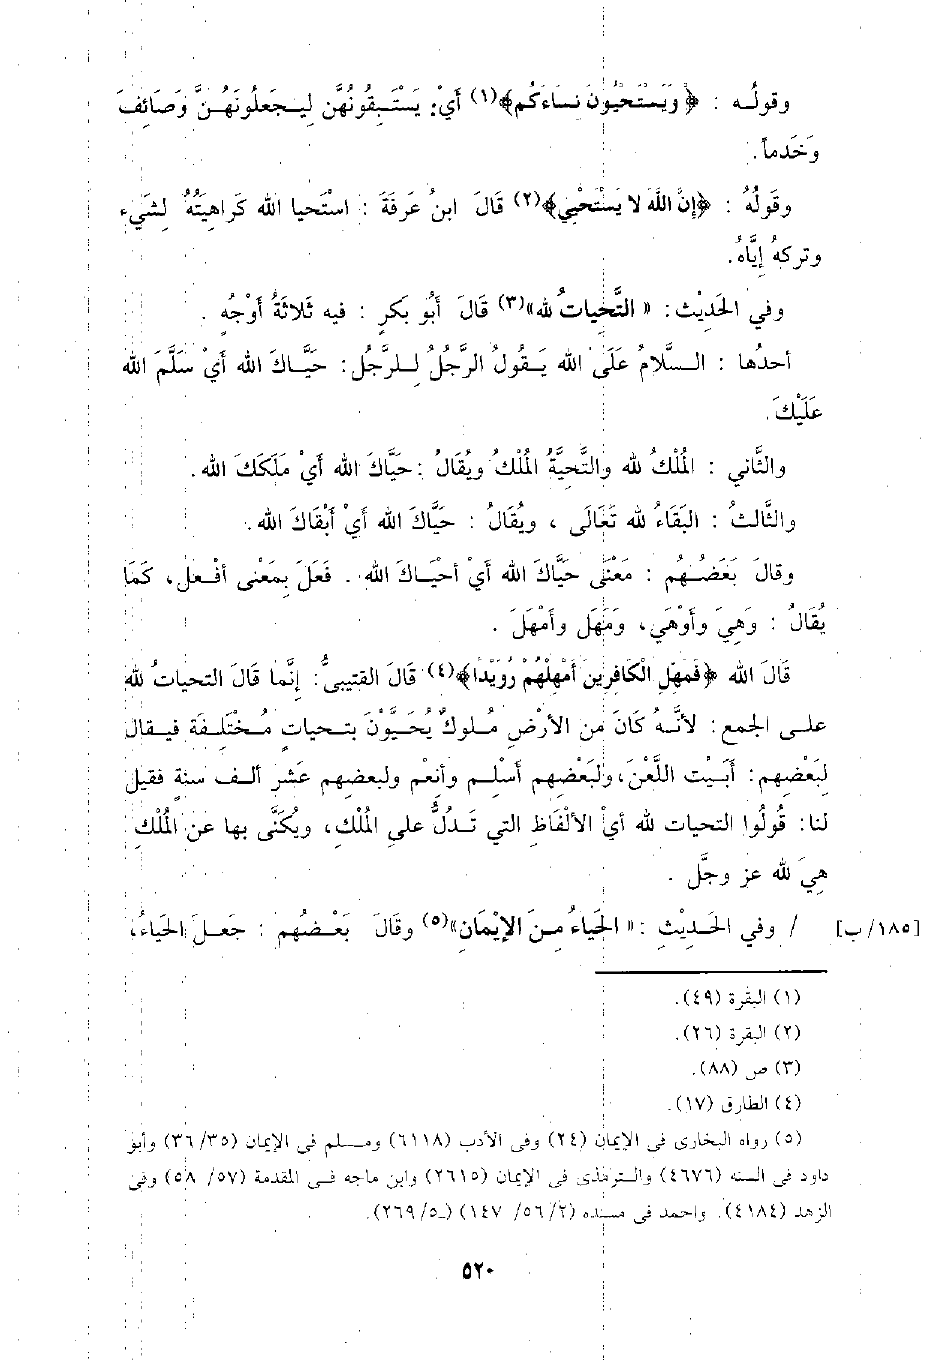 وقولُـه : ﴿ وَيَسْتَحْيُونَ نساءَكُم﴾(١) أَيْ: يَسْتَـبِقُونُهُن لِيـجَعلُونَهُـنَّ وَصَائِفَ
وَخَدماً.
وقَولُهُ : ﴿إِنَّ اللَّهَ لا يَسْتَحْيِي﴾(٢) قَالَ ابنُ عَرفَةَ : استَحيا الله كَراهِيَتُهُ لِشَيءٍ
وتركهُ إِيَّاهُ.
وفي الحَدِيْث: « التَّحِيَاتُ لله»(٣) قَالَ أَبُو بَكرٍ : فيه ثَلاثَةُ أَوْجُهٍ .
أحدُها : السَّـلامُ عَلَى الله يَـقُولُ الرَّجُلُ لِـلرَّجُلِ: حَيَّـاكَ الله أَيْ سَلَّمَ الله
عَلَيْكَ.
والثَّاني : المُلْكُ لله والتَّحيَّةُ المُلْكُ ويُقَالُ : حَيَّاكَ الله أَيْ مَلَكَكَ الله.
والثَّالثُ : البَقَاءُ لله تَعَالَى ، ويُقَالُ : حَيَّاكَ الله أَيْ أَبْقَاكَ الله.
وقالَ بَعَضُـهُم : مَعْنَى حَيَّاكَ الله أَيْ أحْيَـاكَ الله . فَعَلَ بِمَعْنى أفْـعل، كَمَا
يُقَالُ : وَهِيَ وأَوْهَي، وَمَهَل وأَمْهَلَ .
قَالَ الله ﴿فَمَهِّلِ الْكَافِرِينَ أَمْهِلْهُمْ رُوَيْدًا﴾(٤) قَالَ القتيبىُّ: إنَّما قَالَ التحياتُ لله
علـى الجمع: لأنَّـهُ كَانَ مِن الأرْضِ مُـلوكٌ يُحَيَّـوْنَ بتـحياتٍ مُـختَلِـفَة فيـقال
لِبَعْضِهم: أَبَيْت اللَّعْنَ، ولبَعْضِهم أَسْلِـم وأنعْم ولبعضِهم عَشر ألـف سنةٍ فقيل
لنا: قُولُوا التحيات لله أيْ الألْفَاظِ التي تَـدلُّ علي المُلْكِ، ويُكَنَّى بها عن المُلْكِ
هِيَ لله عز وجَّل .
[١٨٥/ ب] / وفي الحَـدِيْثِ :« الحَيَاءُ مِـنَ الإِيْمَانِ»(٥) وقَالَ بَعْـضُهُم : جَعلَ الحَياءُ،
(١) البقرة (٤٩).
(٢) البقرة (٢٦).
(٣) ص (٨٨).
(٤) الطارق (١٧).
(٥) رواه البخارى فى الإيمان (٢٤) وفى الأدب (٦١١٨) ومـسلم فى الإيمان (٣٥/ ٣٦) وأبو
داود فى السنه (٤٦٧٦) والتـرمذى فى الإيمان (٢٦١٥) وابن ماجه فـى المقدمة (٥٧/ ٥٨) وفى
الزهد (٤١٨٤). واحمد فى مسنده (٢/ ٥٦/ ١٤٧) (٥/ ٢٦٩).
٥٢٠